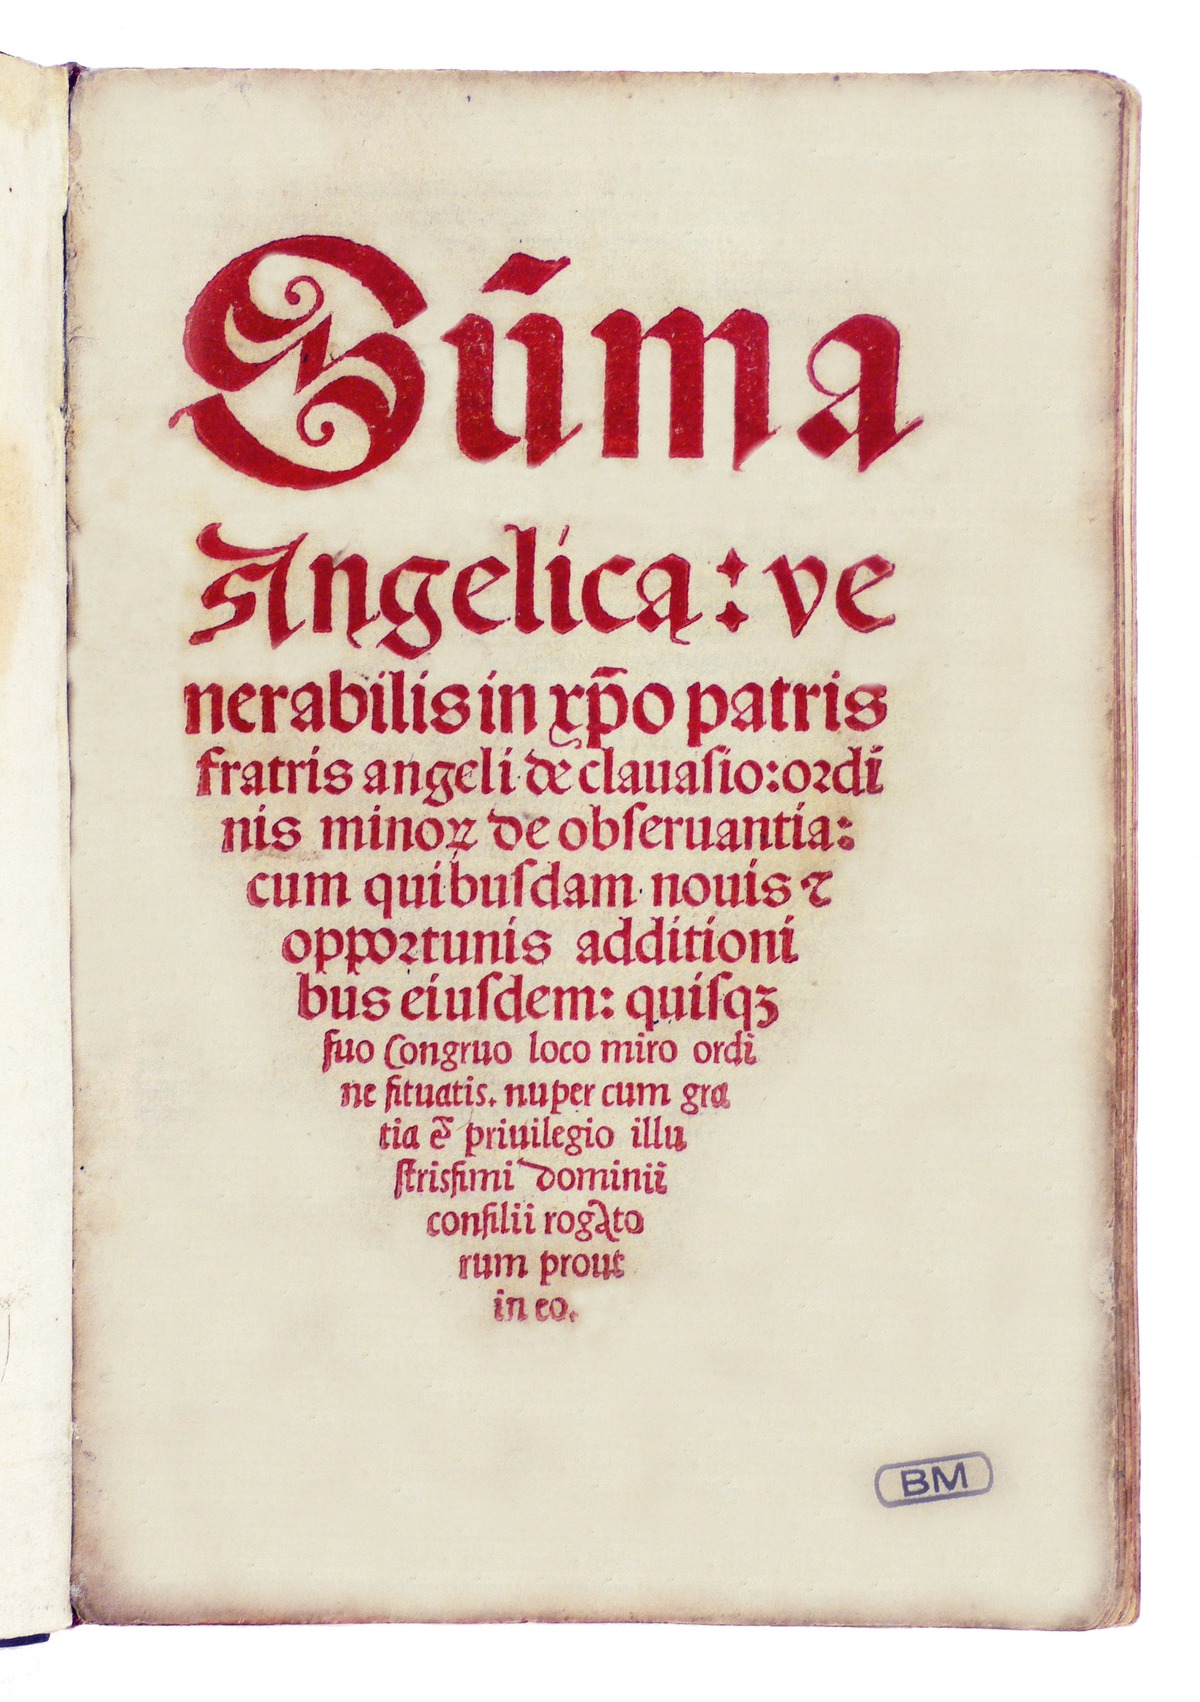 Sūma
Angelica: ve
nerabilis in xp̄o patris
fratris angeli de clauaſio: ordi
nis minoꝝ de obſeruantia:
cum quibuſdam nouis ⁊
opportunis additioni
bus eiuſdem: quiſqꝫ
ſuo Congruo loco miro ordi
ne ſituatis. nuper cum gra
tia & priuilegio illu
ſtriſſimi dominii
conſilii rogato
rum prout
in eo.
BM